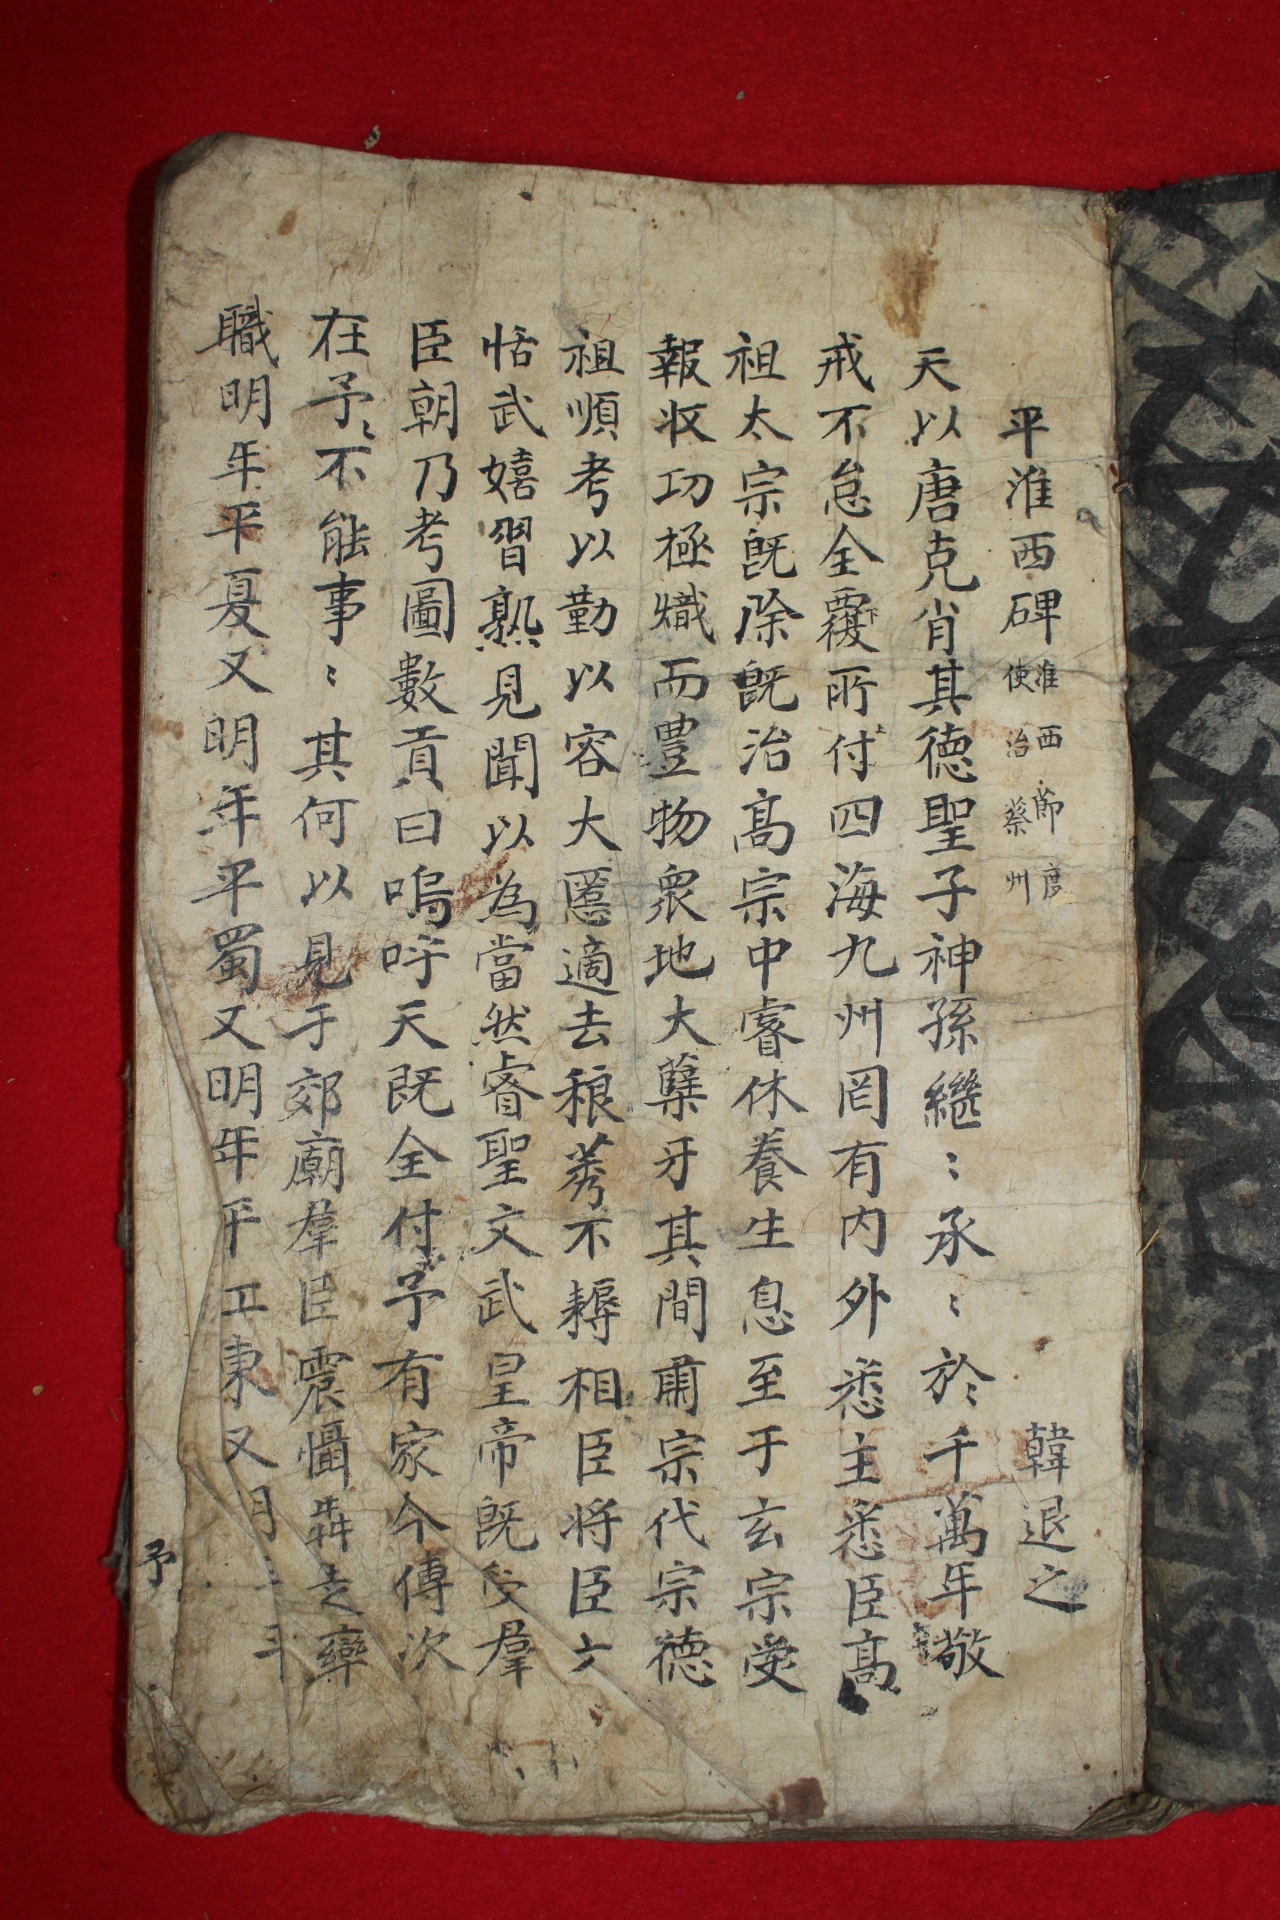 平淮西碑 淮西節度使治蔡州 韓退之
天以唐克肖其德聖子神孫繼〻承〻於〻千萬年敬
戒不怠全覆下所付上四海九州罔有内外悉主悉臣高
祖太宗既除既治高宗中睿休養生息至于玄宗受
報收功極熾而豊物衆地大蘖牙其間肅宗代宗德
祖順考以勤以容大慝適去稂莠不耨相臣将臣文
恬武嬉習熟見聞以為當然睿聖文武皇帝既受羣
臣朝乃考圖數貢曰嗚呼天既全付予有家今傳次
在予〻不能事〻其何以見于郊廟羣臣震慴犇走率
職明年平夏又明年平蜀又明年平江東又明年平
予